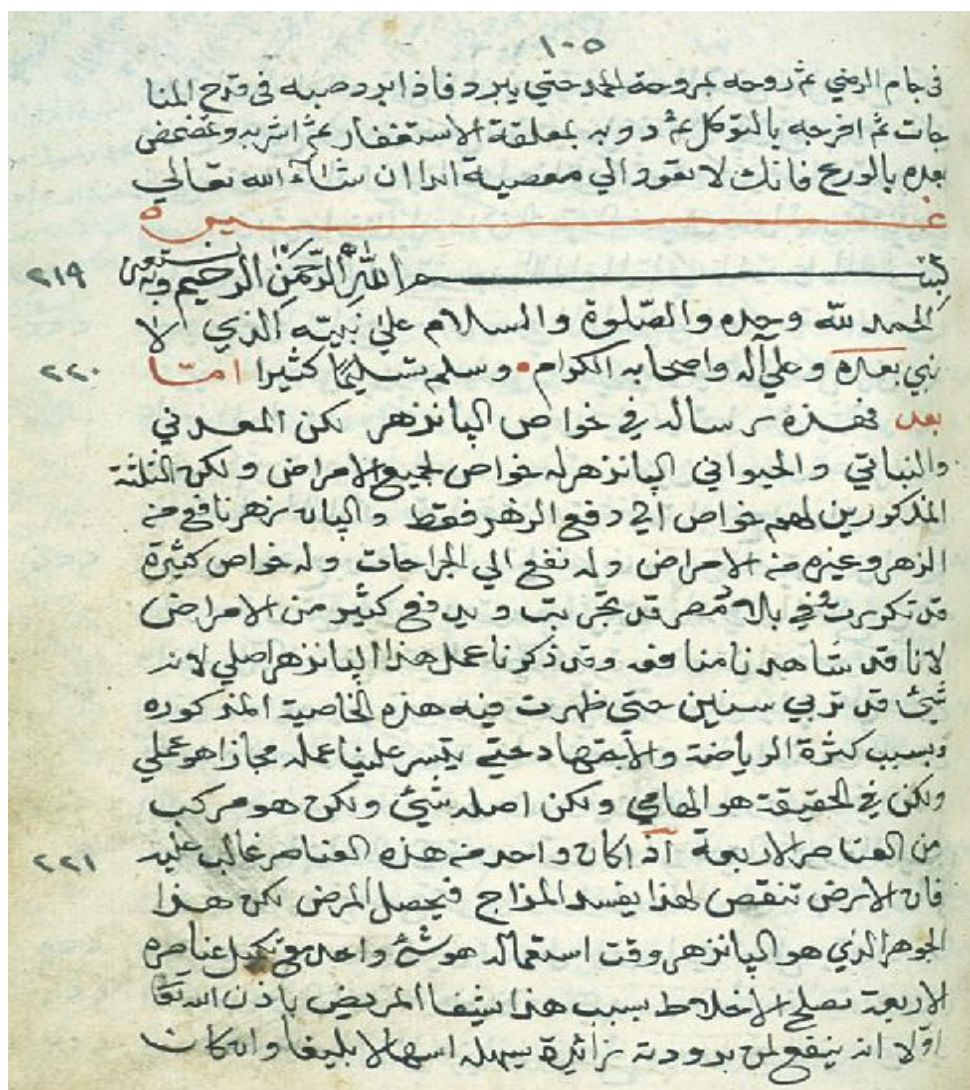 ١٠٥
فى جام الرضي ثم روحه بمروحة الحمد حتي يابرد فاذ ابرد صبه فى قدح المنا
جات ثم افرجه بالتوكل ثم دوبه بمعلقة الاستغفار ثم اشربه وتمضمض
بعده بالورع فانك لا تعود الي معصية ابدا ان شاء الله تعالي
بسم الله الرحمن الرحيم وبه نستعين ٢١٩
الحمد لله وحده والصلوة والسلام علي نبيه الذي لا
نبي بعده وعلي آله واصحابه الكرام • وسلم تسليما كثيرا امّا ٢٢٠
بعد فهذه رساله في خواص البانزهر لكن المعدني
والنباتي والحيواني البانزهر له خواص لجميع الامراض ولكن الثلثة
المذكورين لهم خواص الي دفع الزهر فقط والبانزهر نافع من
الزهر وغيره من الامراض وله نفع الي الجراحات وله خواص كثيرة
قد تكررت في بلاد مصر قد تجربت ويدفع كثير من الامراض
لانا قد شاهدنا منافعه وقد ذكرنا عمل هذا البانزهر اصلي لانه
شئ قد تربي سنين حتى ظهرت فيه هذه الخاصية المذكوره
وبسبب كثرة الرياضة والاجتهاد حتي يتيسر علينا عمله مجازا هو عملي
ولكن في الحقيقة هو الهامي ولكن اصله شئ ولكن هو مركب
من العناصر الاربعة اذ اكان واحد من هذه العناصر غالب عليه ٢٢١
فان الارض تنقص لهذا يفسد المزاج فيحصل المرض لكن هذا
الجوهر الذي هو البانزهر وقت استعماله هو شئ واحد مع تكميل عناصره
الاربعة تصلح الاخلاط بسبب هذا يشفا المريض باذن الله تعا
اوّلا انه ينفع لمن برودته زائدة يسهله اسهالا بليغا وان كان